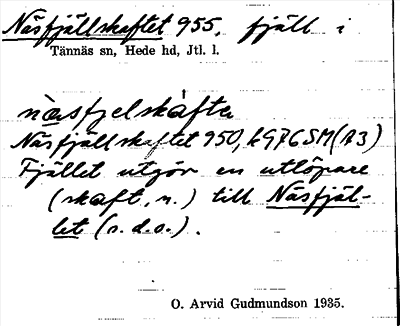 Näsfjällskaftet 955, fjäll i
Tännäs sn, Hede hd, Jtl. l.
næsfjelskàfte
Näsfjällskaftet 950, k 976SM(A3)
Fjället utgör en utlöpare
(skaft, n.) till Näsfjäl-
let (s.d.o.).
O. Arvid Gudmundson 1935.